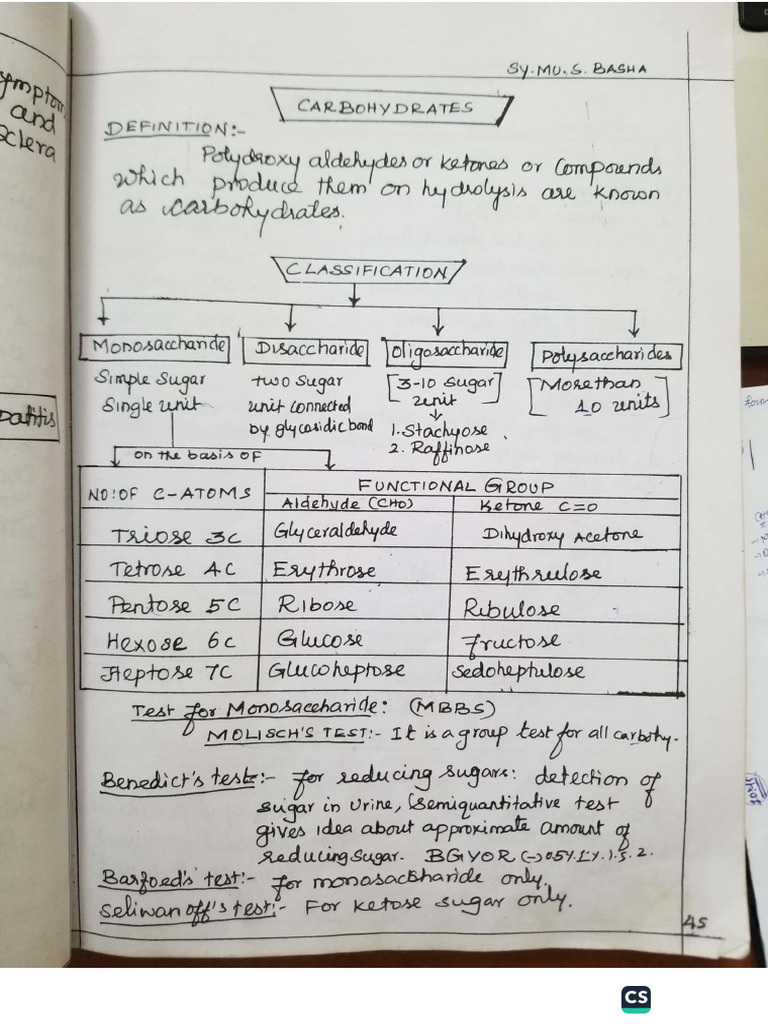 SY.MU.S. BASHA
CARBOHYDRATES
DEFINITION:-
Polydroxy aldehydes or ketones or compounds
which produce them on hydrolysis are known
as carbohydrates.
CLASSIFICATION
Monosaccharide Disaccharide Oligosaccharide Polysaccharides
Simple Sugar two sugar [3-10 sugar [More than
Single unit unit connected unit] 10 units]
by glycosidic bond 1. Stachyose
2. Raffinose
on the basis of
NO: OF C-ATOMS FUNCTIONAL GROUP
Aldehyde (CHO) Ketone C=O
Triose 3C Glyceraldehyde Dihydroxy Acetone
Tetrose 4C Erythrose Erythrulose
Pentose 5C Ribose Ribulose
Hexose 6C Glucose Fructose
Heptose 7C Glucoheptose Sedoheptulose
Test for Monosaccharide: (MBBS)
MOLISCH'S TEST:- It is a group test for all carbohy.
Benedict's test:- for reducing sugars: detection of
sugar in Urine, (Semiquantitative test
gives idea about approximate amount of
reducing sugar. BGYOR
Barfoed's test:- for monosaccharide only.
Seliwanoff's test:- For ketose sugar only.
45
ymptom
and
sclera
CS